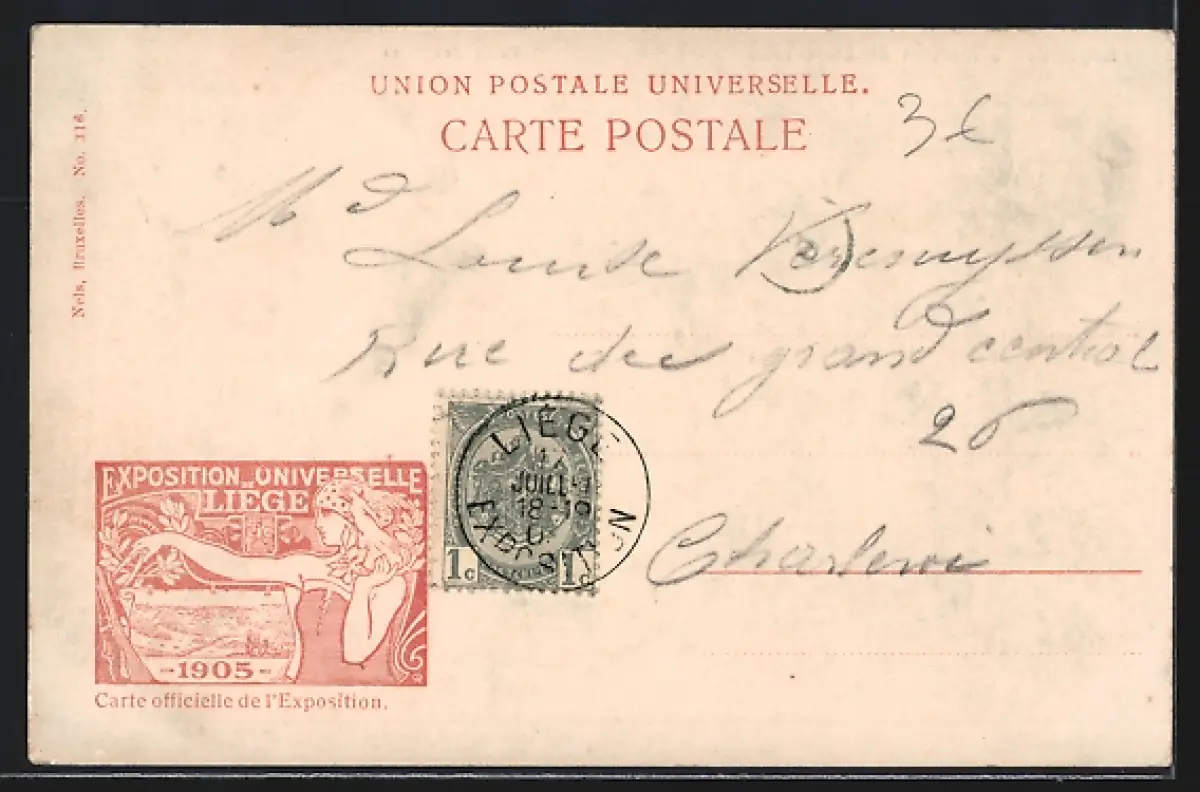 UNION POSTALE UNIVERSELLE.
CARTE POSTALE
3€
Nels, Bruxelles. No. 116.
Md
Louise
Rue des grand central
26
Charleroi
LIÈGE
JUILL
18-19
EXPOSITION
1c 1c
EXPOSITION UNIVERSELLE
LIEGE
-1905-
Carte officielle de l'Exposition.